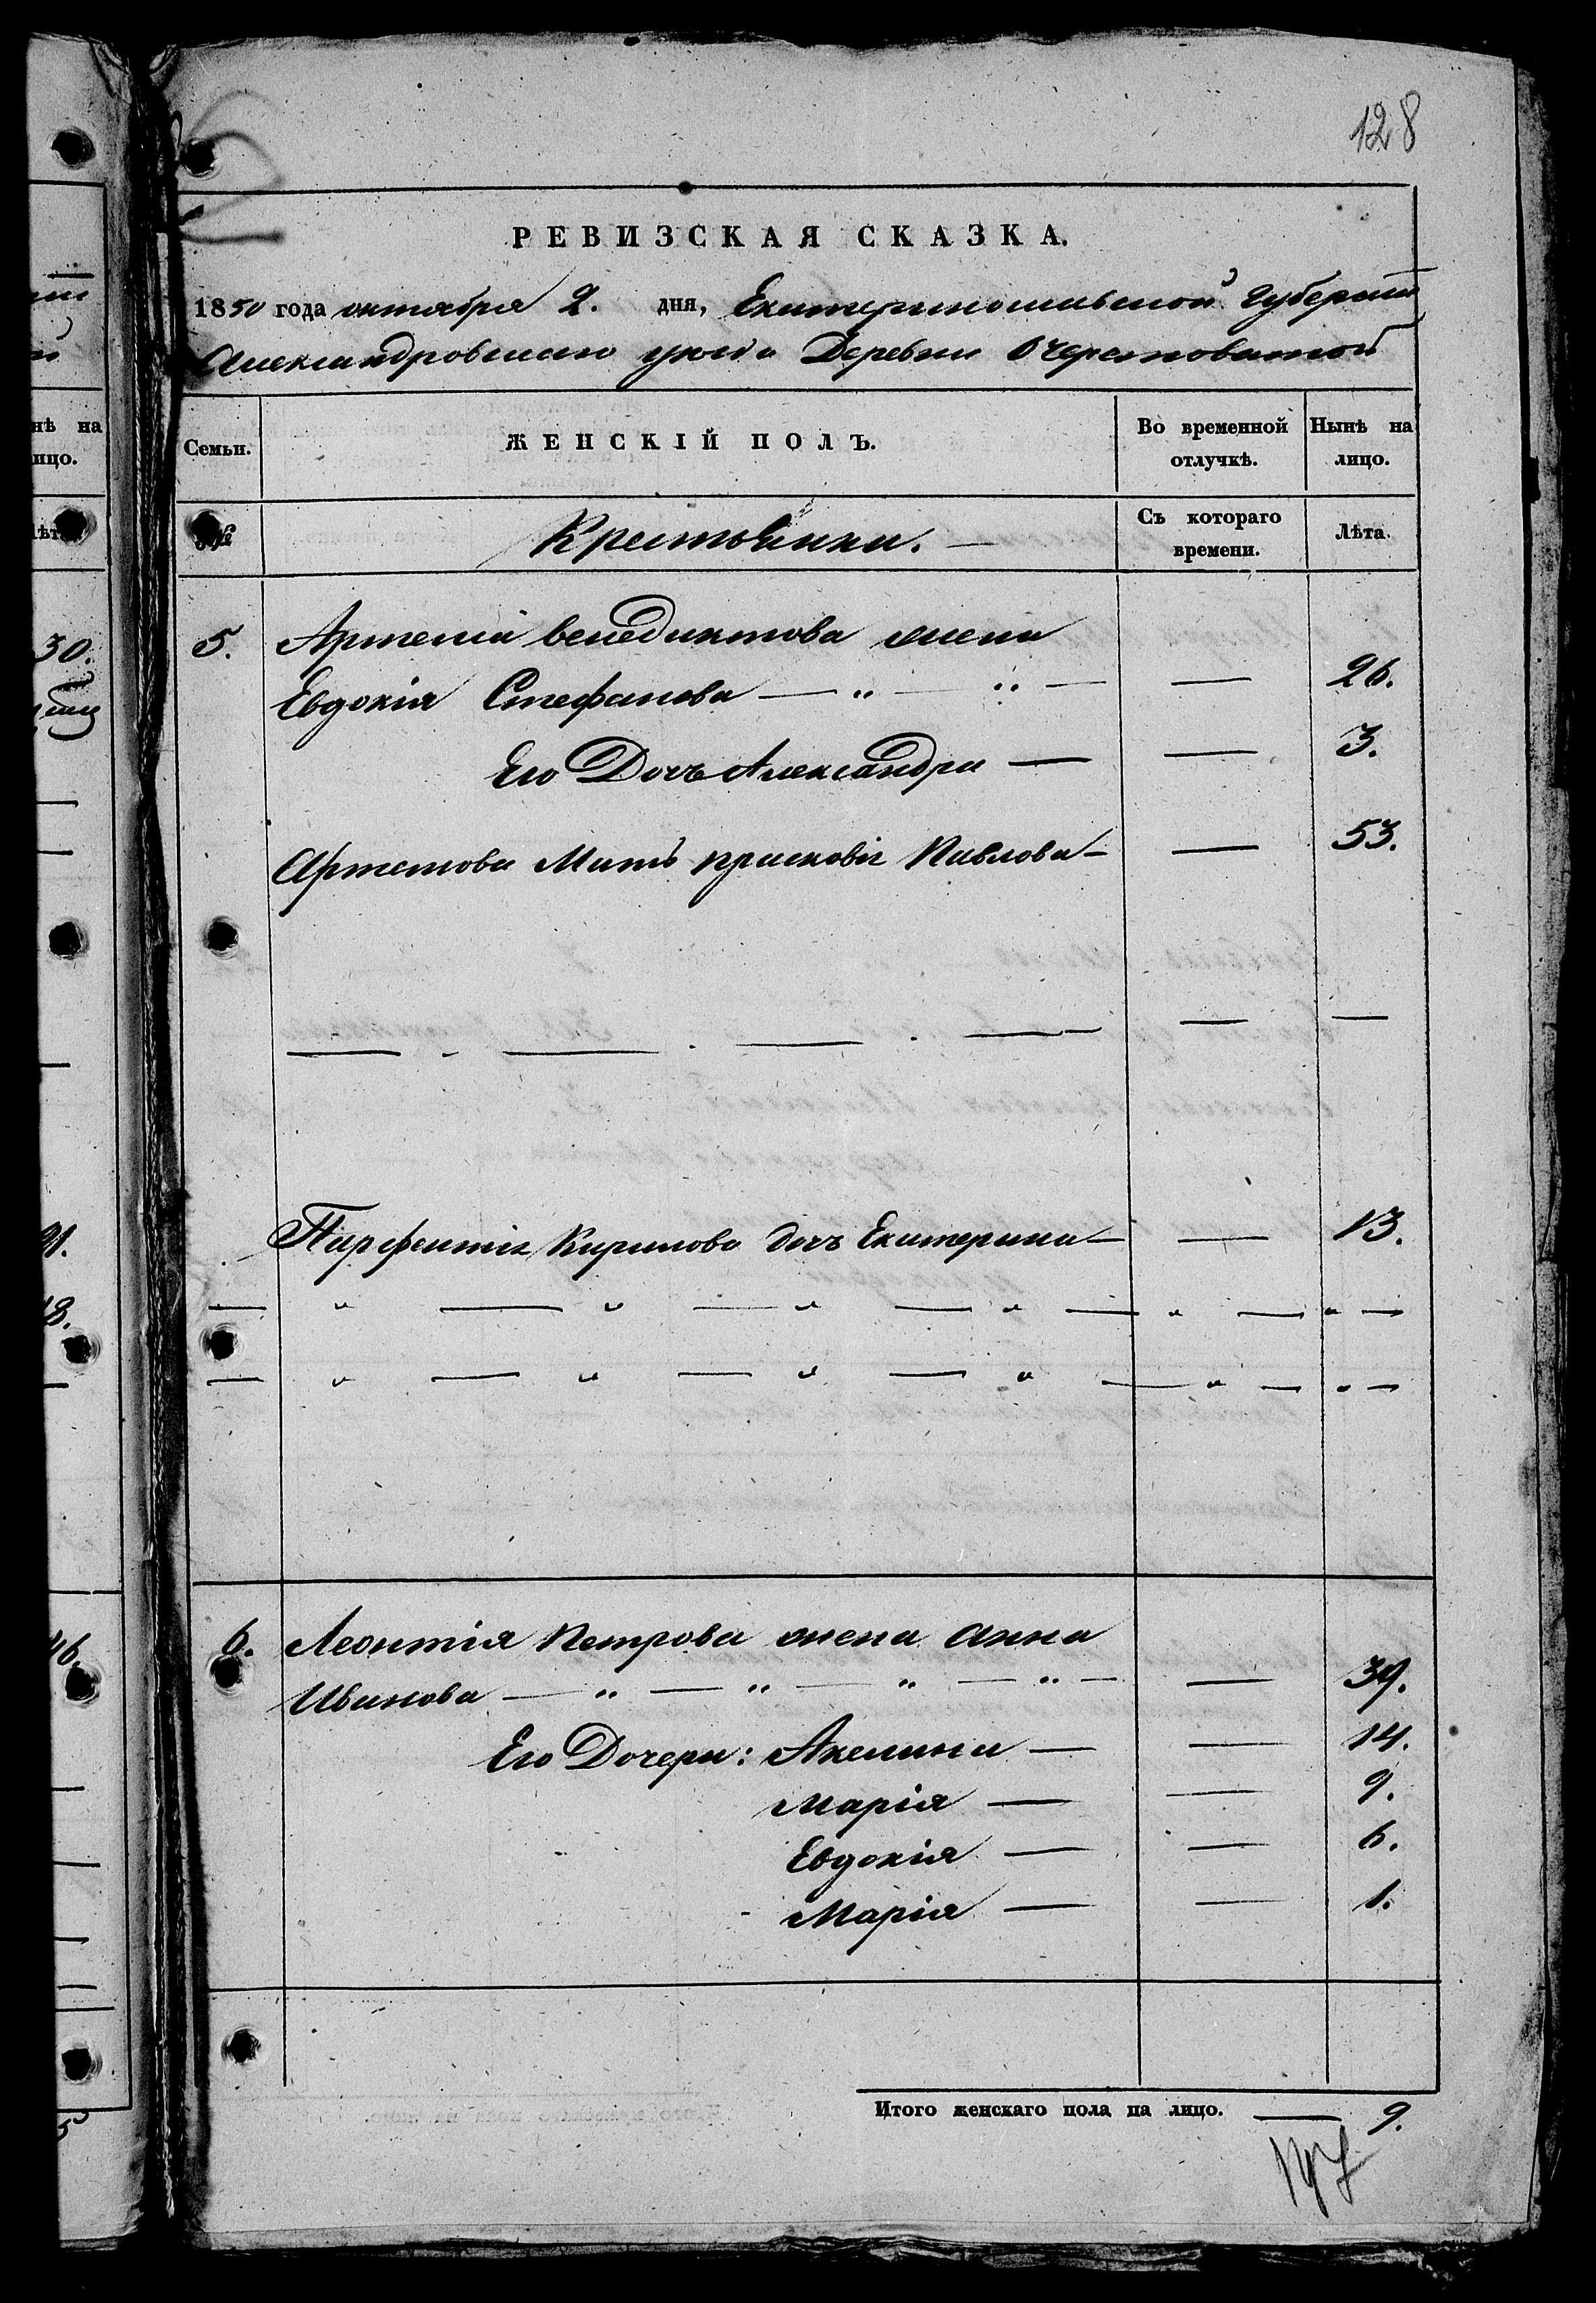 128
РЕВИЗСКАЯ СКАЗКА.
1850 года октября 2. дня, Екатеринославской Губернии
Александровскаго уезда Деревни Очеретоватой
Семьи. ЖЕНСКІЙ ПОЛЪ. Во временной отлучкѣ. Нынѣ на лицо.
№ Крестьянки. — Съ котораго времени. Лѣта.
5. Артемія Венедиктова жена
Евдокія Стефанова — „ — „ — — 26.
Его Дочь Александра — — 3.
Артемова Мать Прасковія Павлова — — 53.
Парфентія Кирилова дочь Екатерина — — 13.
6. Леонтія Петрова жена Анна
Иванова — „ — „ — „ — „ — — 39.
Его Дочери: Акелина — — 14.
Марія — — 9.
Евдокія — — 6.
Марія — — 1.
Итого женскаго пола на лицо. — 9.
нѣ на
ицо.
30.
46.